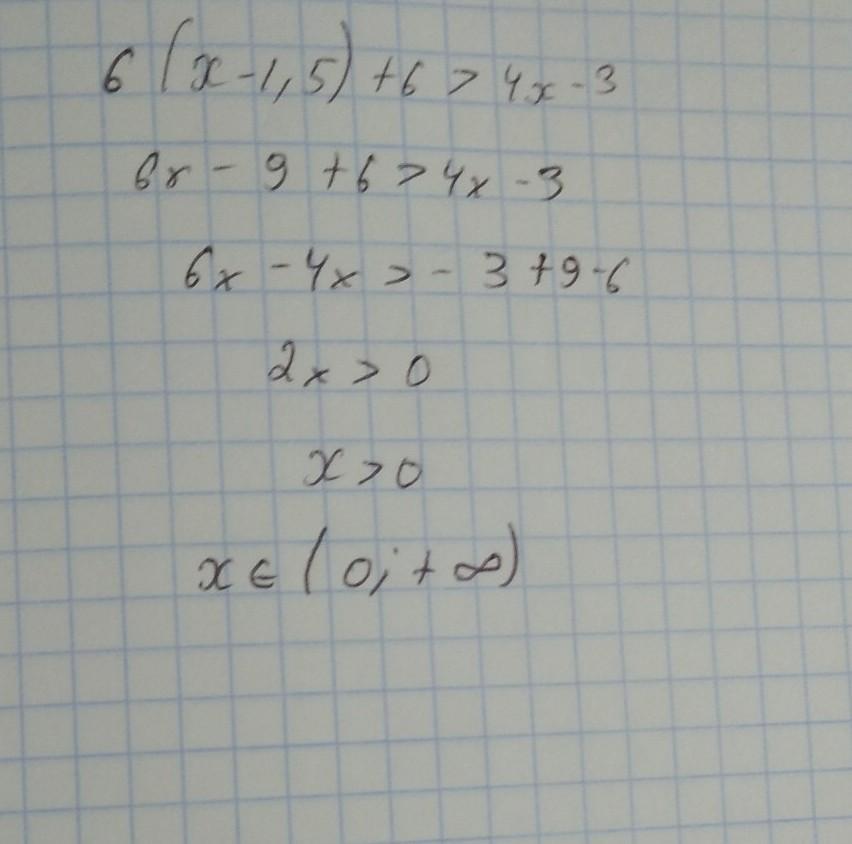 6(x-1,5)+6>4x-3
6x-9+6>4x-3
6x-4x>-3+9-6
2x>0
x>0
x∈(0;+∞)